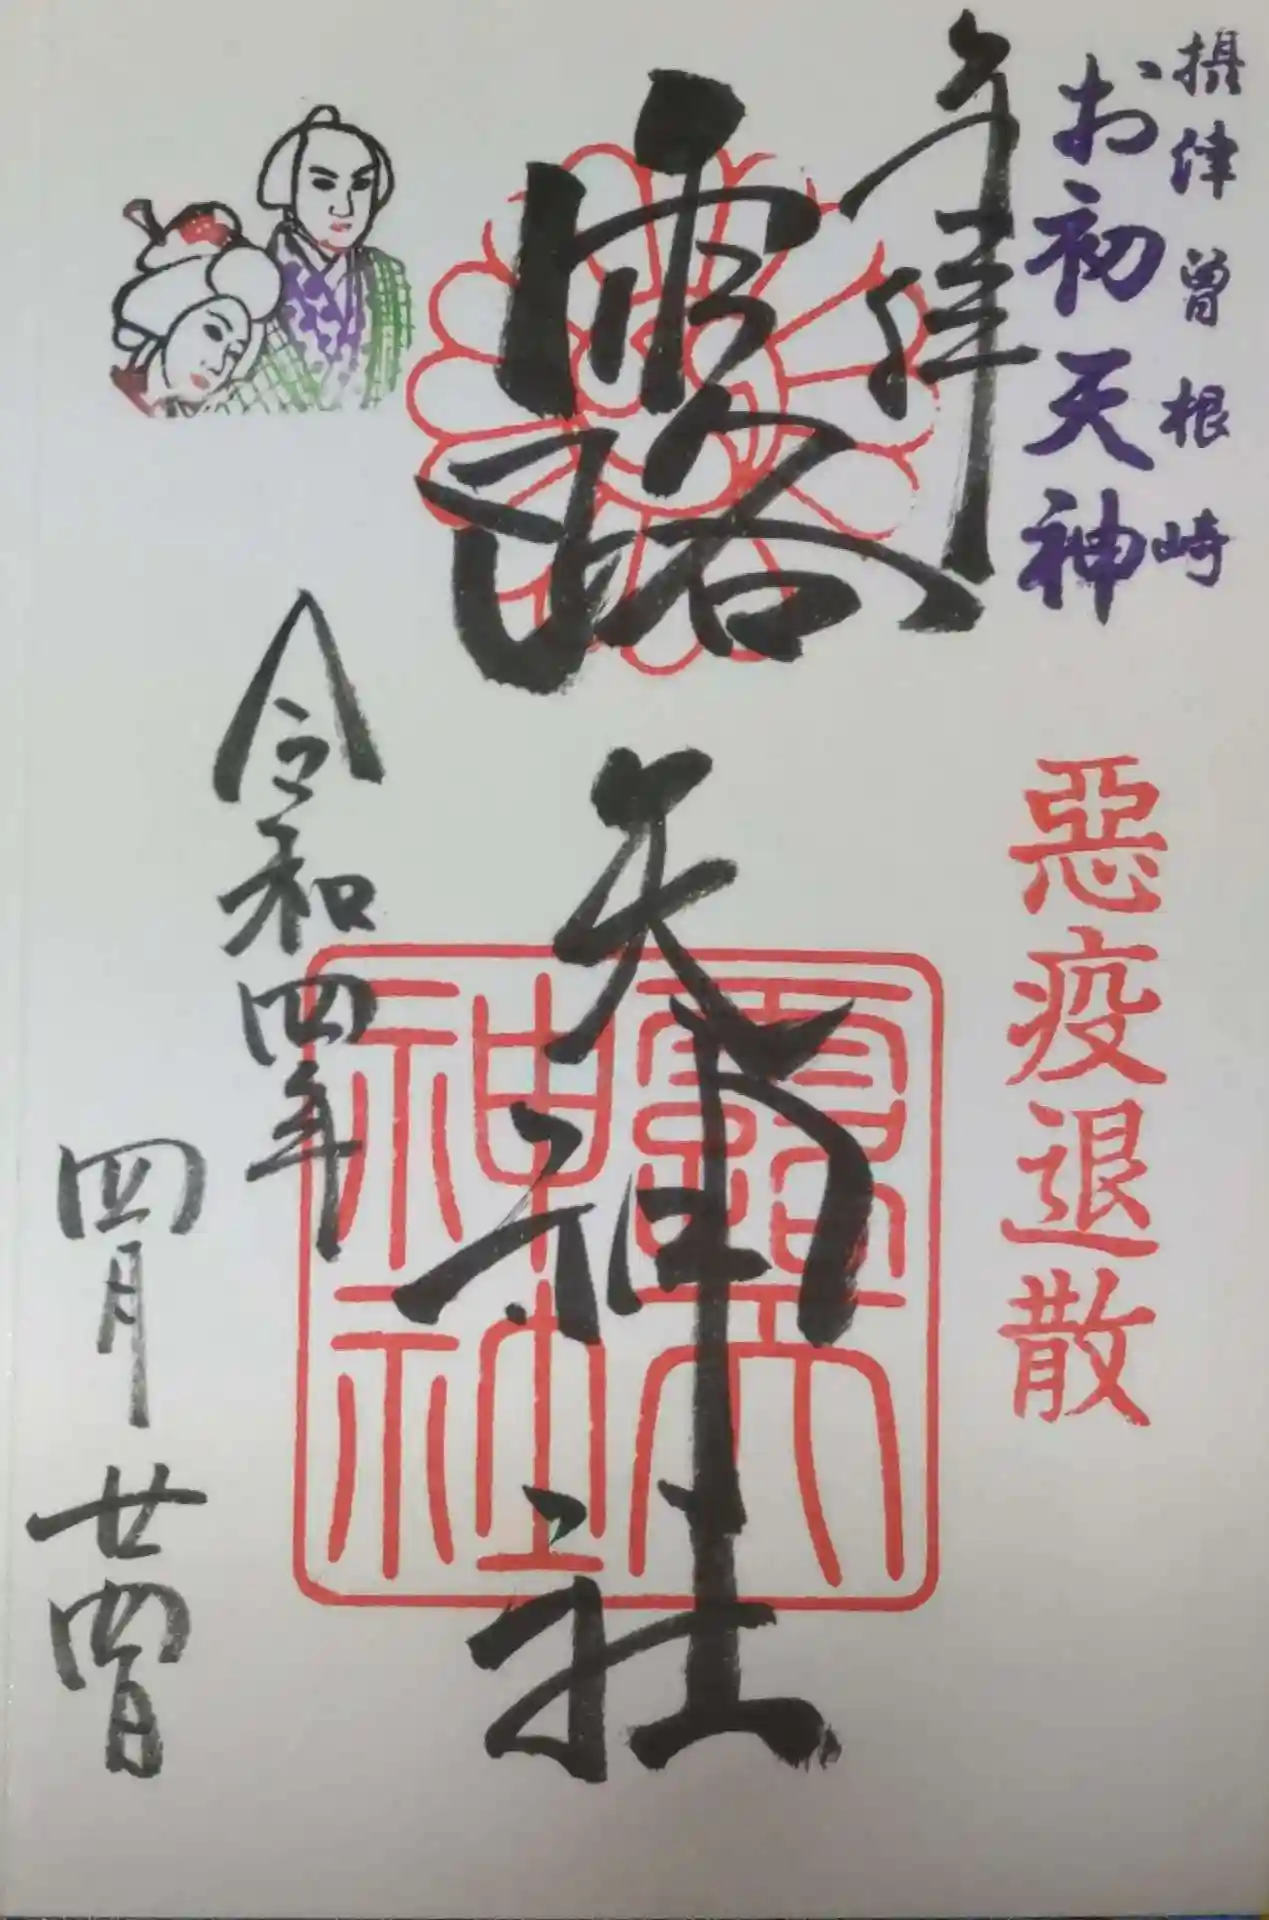 摂津曽根崎
お初天神
奉拝
惡疫退散
露天神社
露天
神社
令和四年
四月廿四日